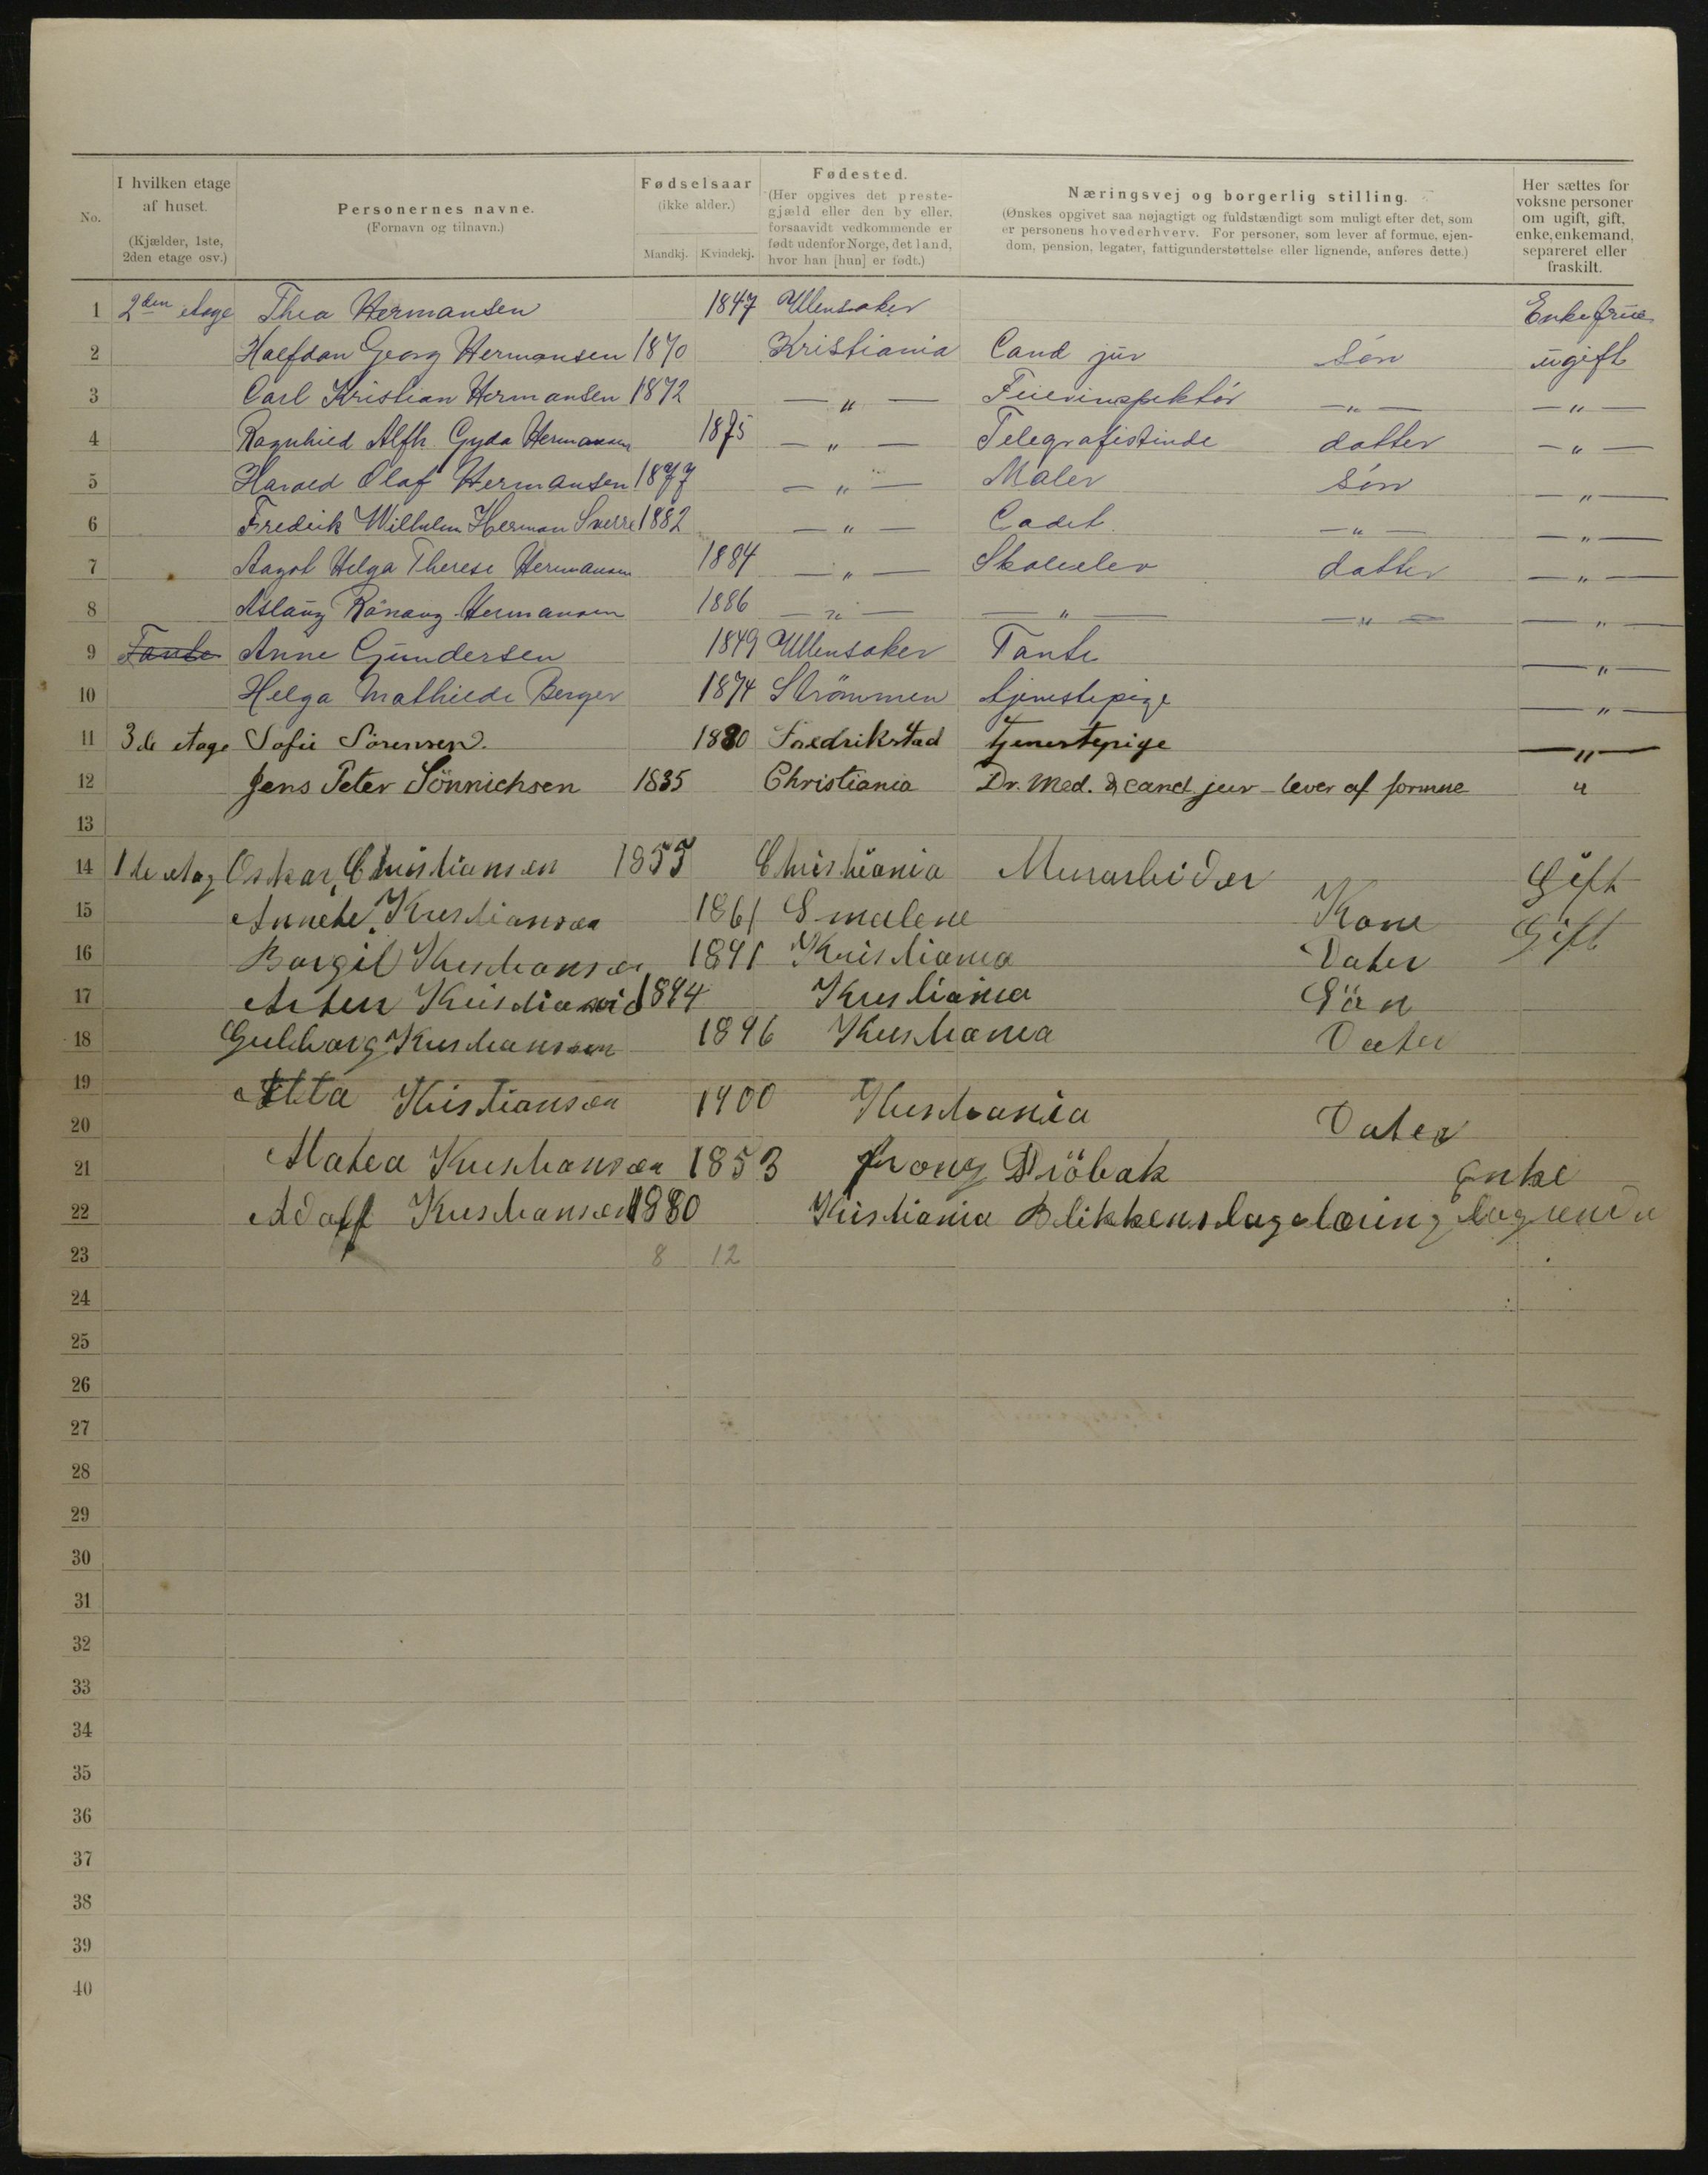 No.
I hvilken etage af huset. (Kjælder, 1ste, 2den etage osv.)
Personernes navne. (Fornavn og tilnavn.)
Fødselsaar (ikke alder.) Mandkj. Kvindekj.
Fødested. (Her opgives det prestegjæld eller den by eller, forsaavidt vedkommende er født udenfor Norge, det land, hvor han [hun] er født.)
Næringsvej og borgerlig stilling. (Ønskes opgivet saa nøjagtigt og fuldstændigt som muligt efter det, som er personens hovederhverv. For personer, som lever af formue, ejendom, pension, legater, fattigunderstøttelse eller lignende, anføres dette.)
Her sættes for voksne personer om ugift, gift, enke, enkemand, separeret eller fraskilt.
1 2den etage Thea Hermansen 1847 Ullensaker Enkefrue
2 Halfdan Georg Hermansen 1870 Kristiania Cand jur søn ugift
3 Carl Kristian Hermansen 1872 — " — Feierinspektør — " — — " —
4 Ragnhild Alfh. Gyda Hermansen 1875 — " — Telegrafistinde datter — " —
5 Harald Olaf Hermansen 1877 — " — Maler søn — " —
6 Fredrik Wilhelm Herman Sverre 1882 — " — Cadet — " — — " —
7 Aagot Helga Therese Hermansen 1884 — " — Skoleelev datter — " —
8 Aslaug Rønaug Hermansen 1886 — " — — " — — " — — " —
9 Tante Anne Gundersen 1849 Ullensaker Tante — " —
10 Helga Mathilde Berger 1874 Strömmen tjenestepige — " —
11 3de etage Sofie Sørensen. 1880 Fredrikstad tjenestepige — " —
12 Jens Peter Sönnichsen 1835 Christiania Dr. Med. & cand. jur - lever af formue "
13
14 1te etag Oskar Christiansen 1855 Christiania Murarbeider Gift
15 Annete Kristiansen 1861 Smalene Kone Gift
16 Borgil Kristiansen 1891 Kristiania Dater
17 Artur 1894 Kristiania Sön
18 Gulborg Kristiansen 1896 Kristiania Dater
19 Kristiansen 1900 Kristiania Dater
20
21 Matea Kristiansen 1853 Dröbak Enke
22 Adolf Kristiansen 1880 Kristiania
23 8 12
24
25
26
27
28
29
30
31
32
33
34
35
36
37
38
39
40